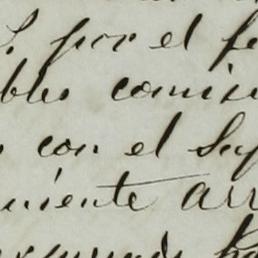 S. por el fe
bles comisi
con el Sup
niente arr